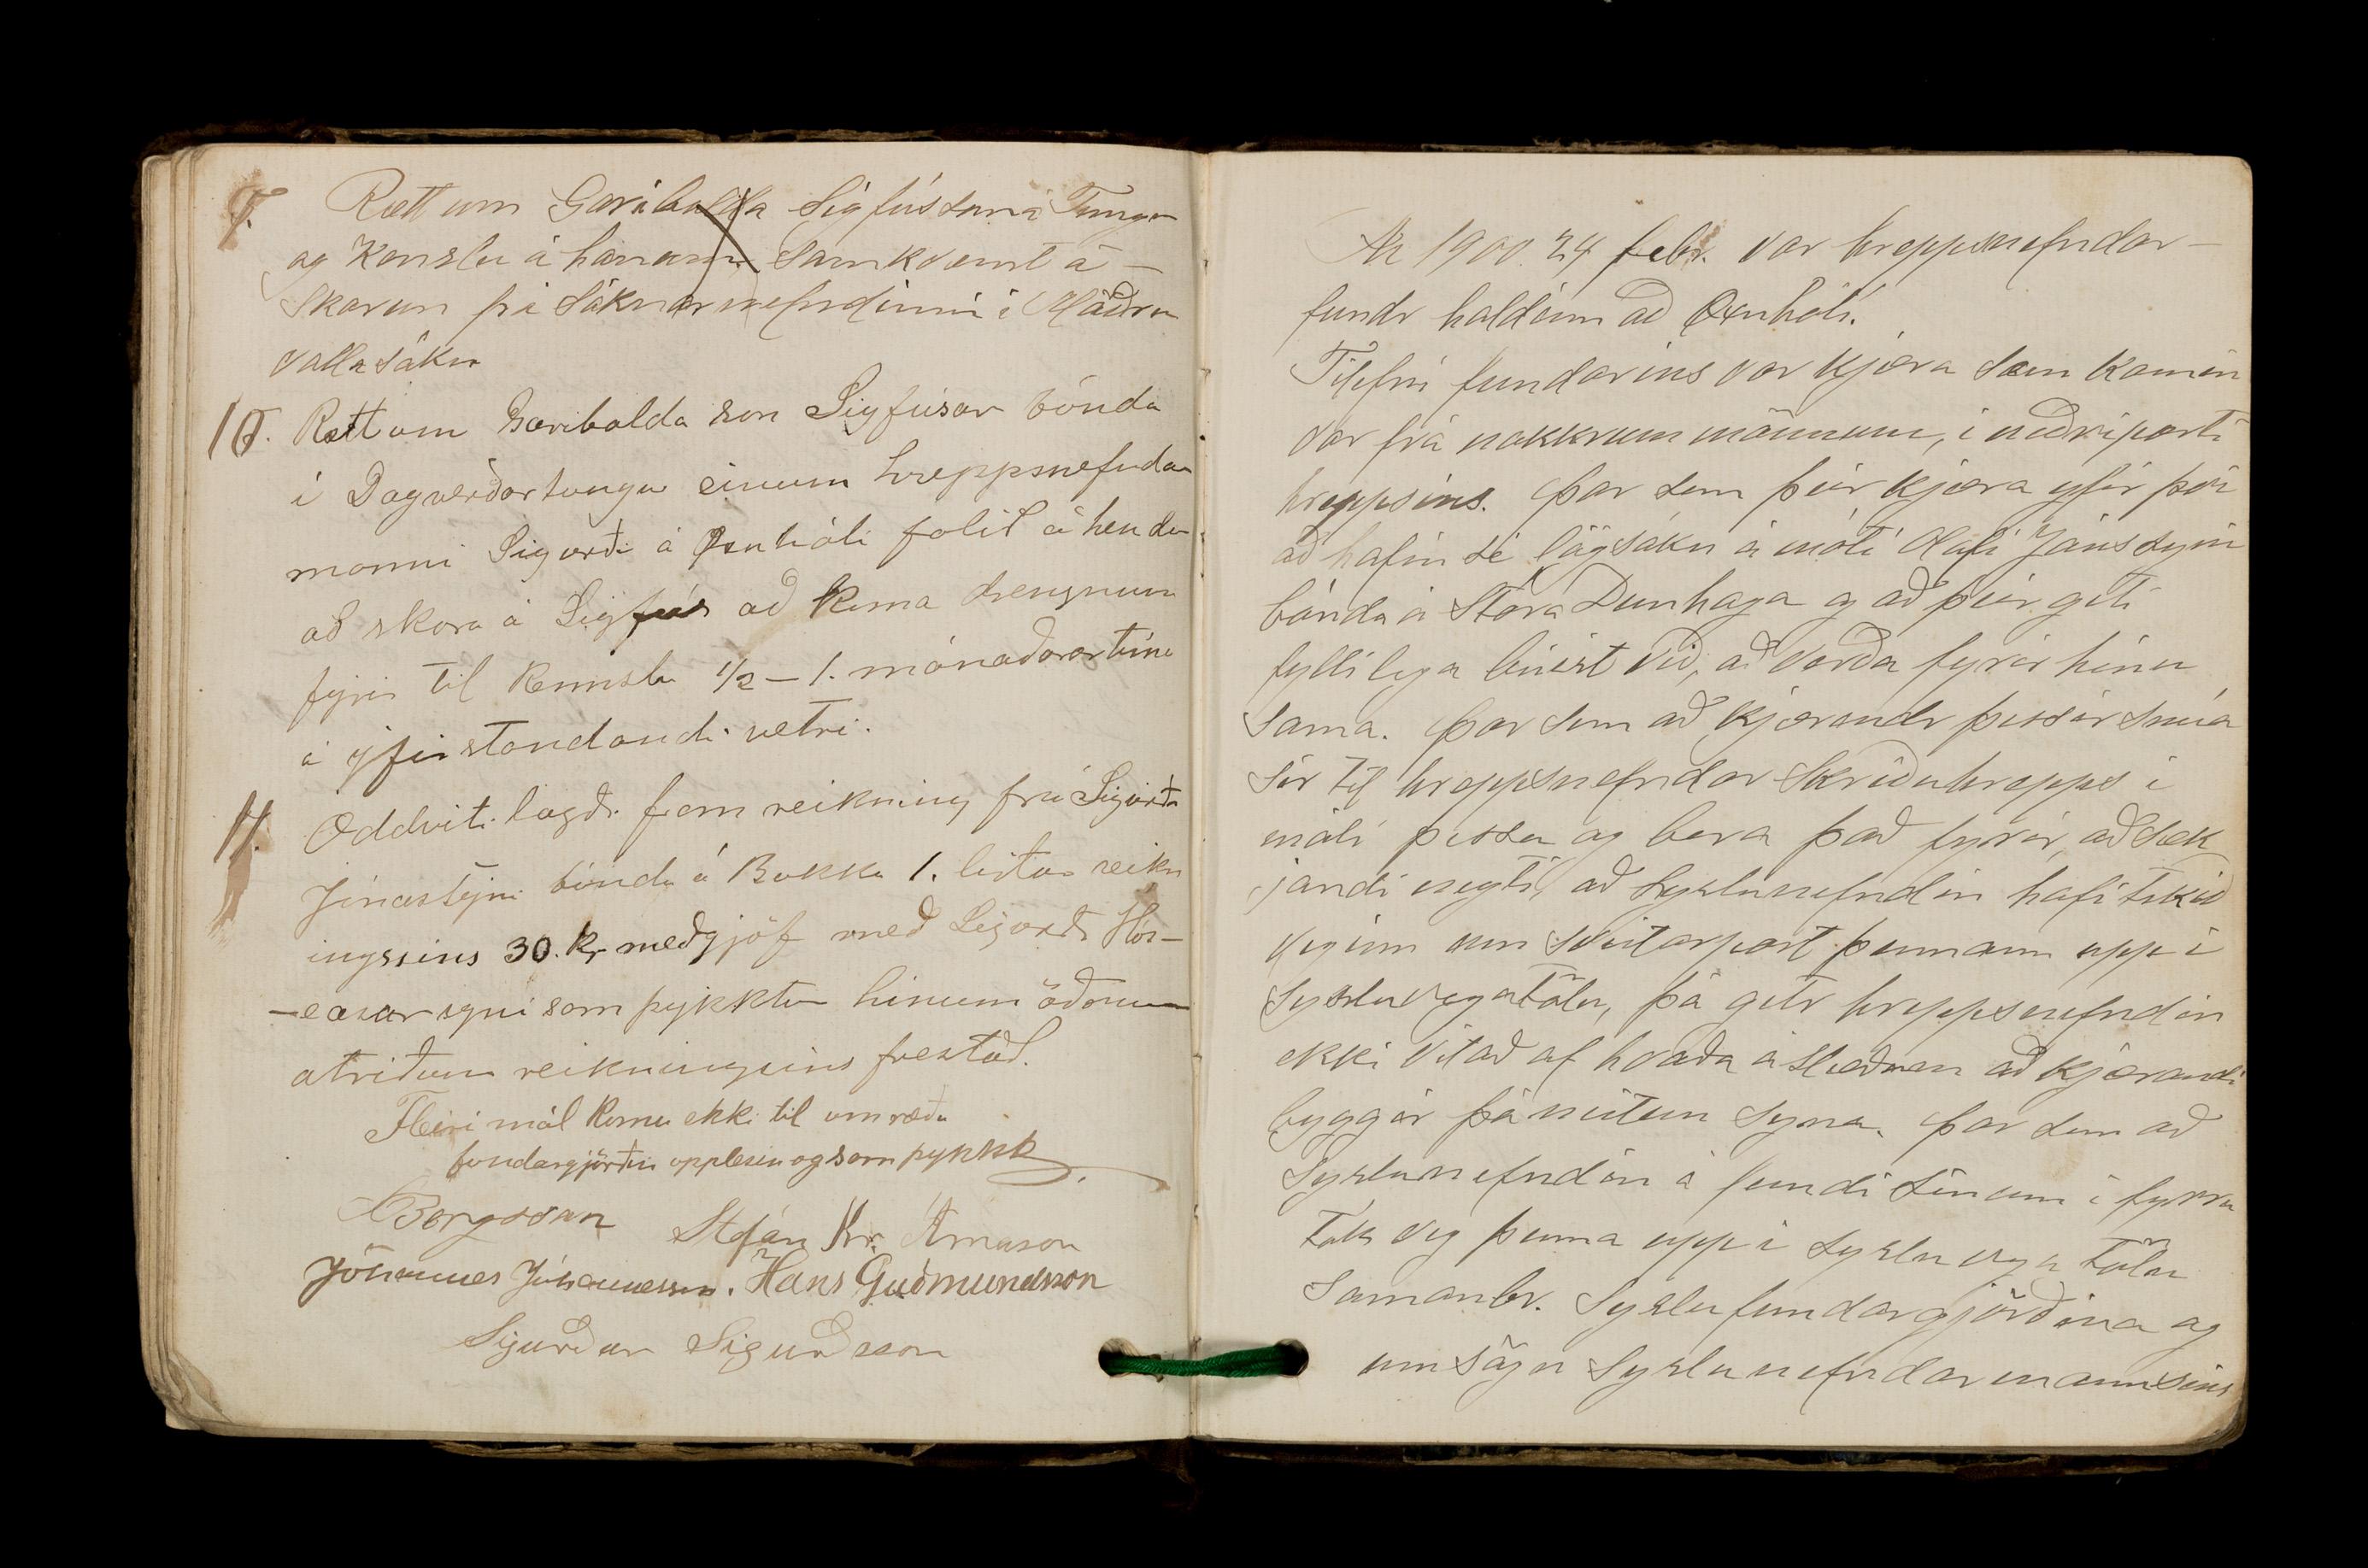 9. Rætt um Garibalda Sigfússon á Tungu
og Kenslu á honum samkvæmt á-
skorun frá sóknarnefndinni í Möðru
vallasókn
10. Rætt um Garibalda son Sigfúsar bónda
í Dagverðartungu einum hreppsnefndar
manni Sigurði á Öxnhóli falið á hendur
að skora á Sigfús að koma drengnum
fyrir til kennslu 1/2 – 1. mánaðartíma
á yfirstandandi vetri.
11. Oddviti lagði fram reikning frá Sigurði
Jónassyni bónda á Bakka 1. liður reikn
ingssins 30. kr meðgjöf með Sigurði Hós-
-easarsyni samþykktur hinum öðrum
atriðum reikningsins frestað.
Fleiri mál komu ekki til umræðu
fundargjörðin upplesin og samþykkt.
Bergsson Stefán Kr. Árnason
Jóhannes Jóhannesson. Hans Guðmundsson
Sigurður Sigurðsson
Ár 1900. 24 febr. var hreppsnefndar-
fundr haldinn að Öxnhóli.
Tilefni fundarins var kjæra sem komin
var frá nokkrum mönnum, í neðriparti
hreppsins. Þar sem þeir kjæra yfir því
að hafin sé lögsókn á móti Olafi Jónssyni
bónda á Stóra Dunhaga og að þeir geti
fyllilega búist við, að verða fyrir hinu
sama. Þar sem að kjærendr þessir snúa
sér til hreppsnefndar Skriðuhrepps í
máli þessu og bera það fyrir, að sæk
jandi neyti, að Syslunefndin hafi tekið
veginn um sveitarpart þennann upp í
Sysluvegatölu, þá getr hreppsnefndin
ekki vitað af hvaða ástæðum að kjærandi
byggir þá neitun syna. Þar sem að
Syslunefndin á fundi sínum í fyrra
tók veg þenna upp í sysluvega tölu
Samanbr. Syslufundargjörðina og
umsögn Syslunefndarmannsins